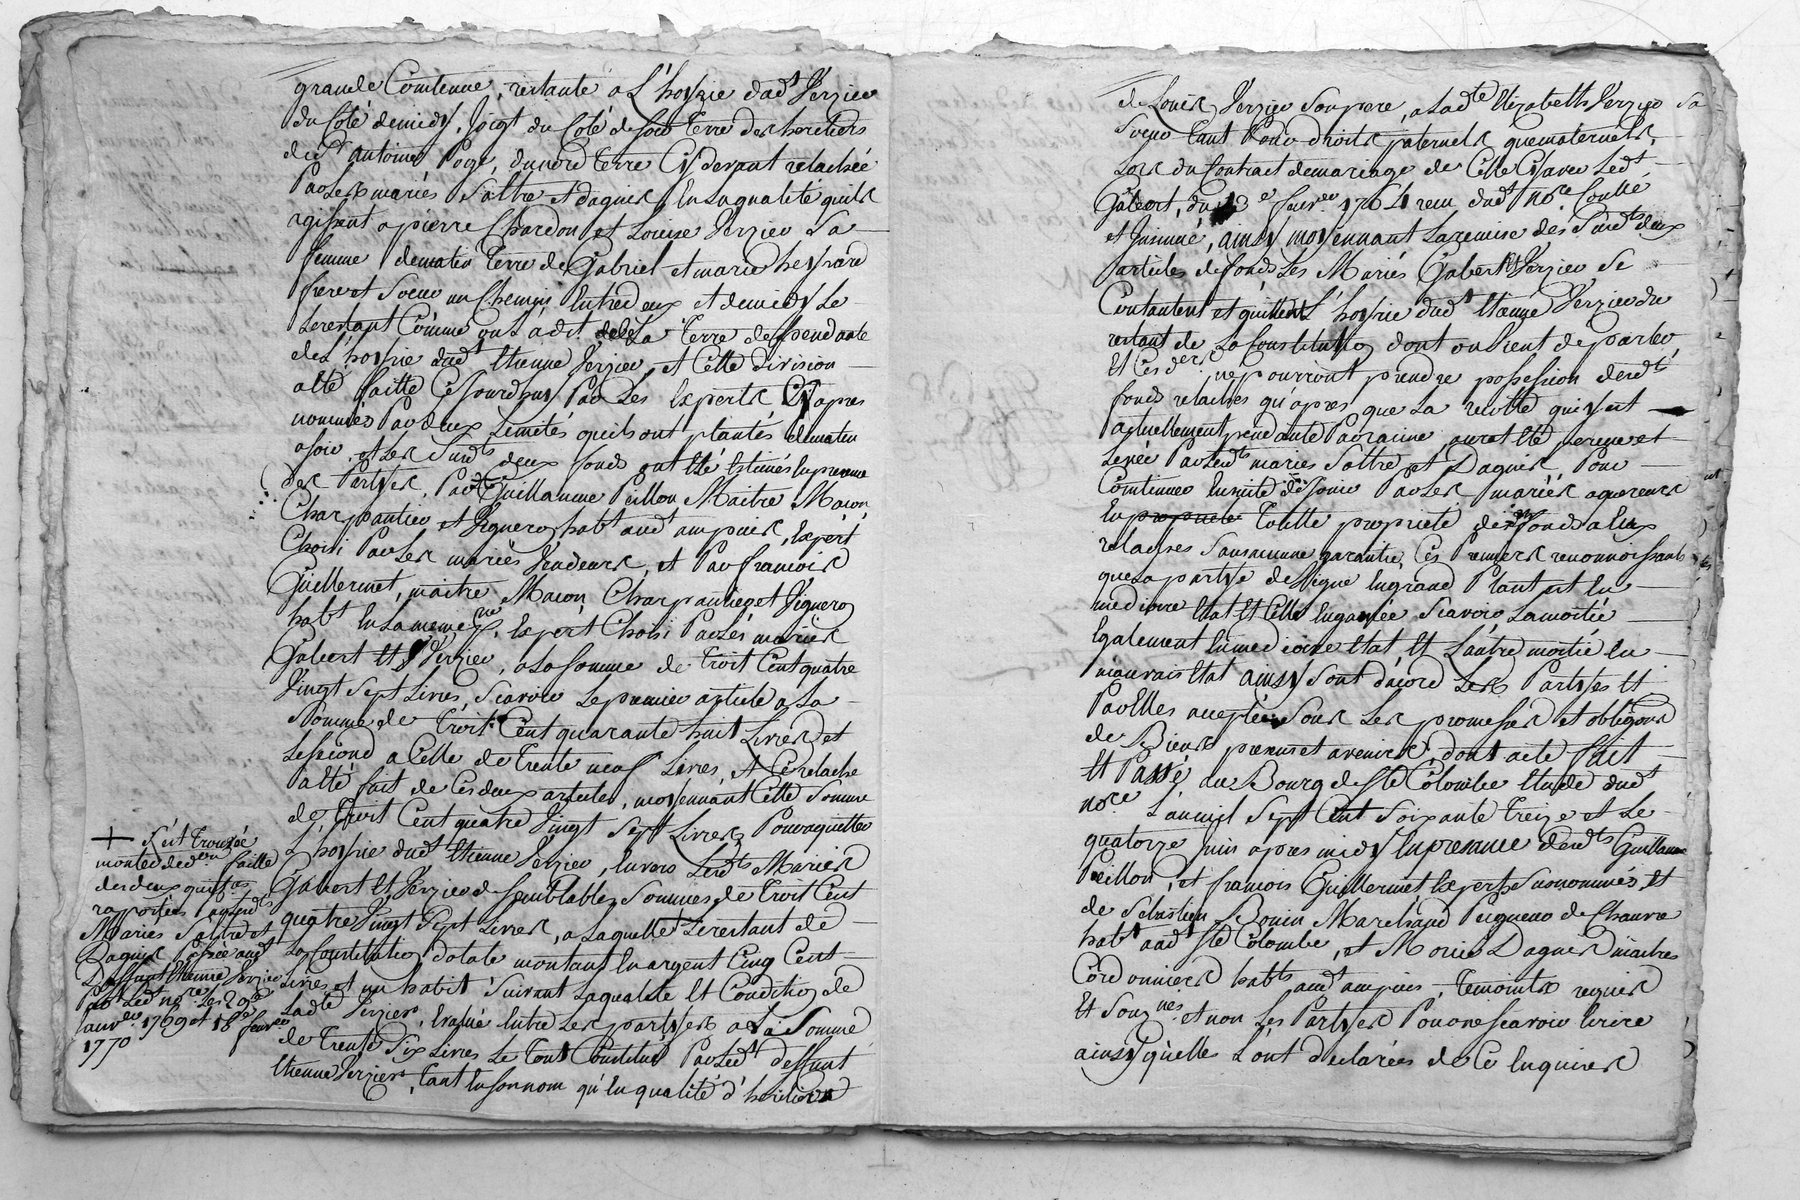 grande Contenue, restante a L'hoyrie dudt Verzier
du Coté demidy, Joigt du Coté de soir terre des heritiers
de st antoine Poge, du nord terre Cy devant relachée
Par Les mariés Saltre et daguier En la qualité quils
agissent a pierre Chardon et Louise Verzier Sa
femme Dematin terre de Gabriel et marie heyrard
frere et soeur un Chemin Entredeux et demidy Le
Lerestant Comme on L'a dit de La terre deppendante
de L'hoyrie dudt Etienne Verzier, et Cette division
a êté faitte Cejourdhuy Par Les Experts Cy apres
nommés Par deux Limites quils ont plantés dematin
a soir. et Les Susdts deux fonds ont êté Estimés En presence
des Partyes, Par Guillaume Peillon Maitre Macon
Charpantier et Vigneron habt audt ampuis, Expert
Choisi Par Les mariés Vendeurs, et Par francois
Guillermet, maitre Macon Charpantier et Vigneron
habt En La meme psse, Expert Choisi Par Les mariés
Gabert Et Verzier, a La somme de Troit Cent quatre
Vingt Sept Livres, Scavoir Le premier article a La
Somme de Troit Cent quarante huit Livres et
Le second a Celle de Trente neuf Livres, et Ce relache
a êté fait de Ces deux articles, moyennant Cette Somme
de Troit Cent quatre Vingt Sept Livres Pour aquitter
L'hoyrie dudt Etienne Verzier, Envers Lesdts Mariés
Gabert Et Verzier de semblable Somme de Troit Cent
quatre Vingt Sept Livres, a Laquelle + Lerestant de
La Constitution dotale montant En argent Cinq Cent
Livres et un habit Suivant La qualité Et Condition de
Ladte Verzier, Evalué Entre Les partyes a La Somme
de Trente Six Livres Le Tout Constitué Par Ledt deffunt
Etienne Verzier, Tant En son nom qu'En qualité d'héritier
+ s'est trouvée
monter deduon faitte
des deux quittas
raportées Par Lesdts
Maries Saltre et
Daguier Passées audt
Deffunt Etienne Verzier
Pdt Ledt nore Les 29e
Janver 1769 et 18e fevrer
1770
de Louis Verzier Son pere, a Ladte Elizabeth Verzier Sa
Soeur Tant Pour droits paternels que maternels,
Lors du Contract de mariage de Celle Cy avec Ledt
Gabert, du 13e fevrer 1764 recu dudt nore Collé
et Insinué, ainsy moyennant La remise des Susdts deux
articles de fonds Les Mariés Gabert et Verzier Se
Contantent et quittent L'hoyrie dudt Etienne Verzier du
restant de La Constitution dont on vient de parler,
Et Ces ders ne pourront prendre possession desdts
fonds relachés qu'apres que La recolte qui y est
actuellement pendante Par racine aura Eté percue et
Levée Par Lesdts mariés Saltre et Daguier, Pour
Continuer Ensuite de Jouir Par Les mariés aquereurs
En propriete Toutte propriété des fonds a Eux
relachés Sans aucune garantie, Ces Premiers reconnoissants
que La partye de Vigne En grand Plant est En
médiocre Etat Et Celle Engavée Scavoir La moitié
Egalement En médiocre Etat Et L'autre moitié En
mauvais Etat ainsy Sont d'acord Les Partyes Et
Par Elles accepté Sous Les promesses et obligons
de Biens presens et avenirs dont acte fait
Et Passé au Bourg de Ste Colombe Etude dudt
nore L'an mil Sept Cent Soixante Treize et Le
quatorze Juin apres midy En presence desdts Guillaume
Peillon, et francois Guillermet Experts Susnommés, et
de Sebastien Bonin Marchand Peigneur de Chanvre
habt aud Ste Colombe, et Morie Daguier maitre
Cordonnier habts audt ampuis, Temoints requis
Et Sougnes et non Les Partyes Pour ne Scavoir Ecrire
ainsy qu'elles L'ont declarées de Ce Enquises